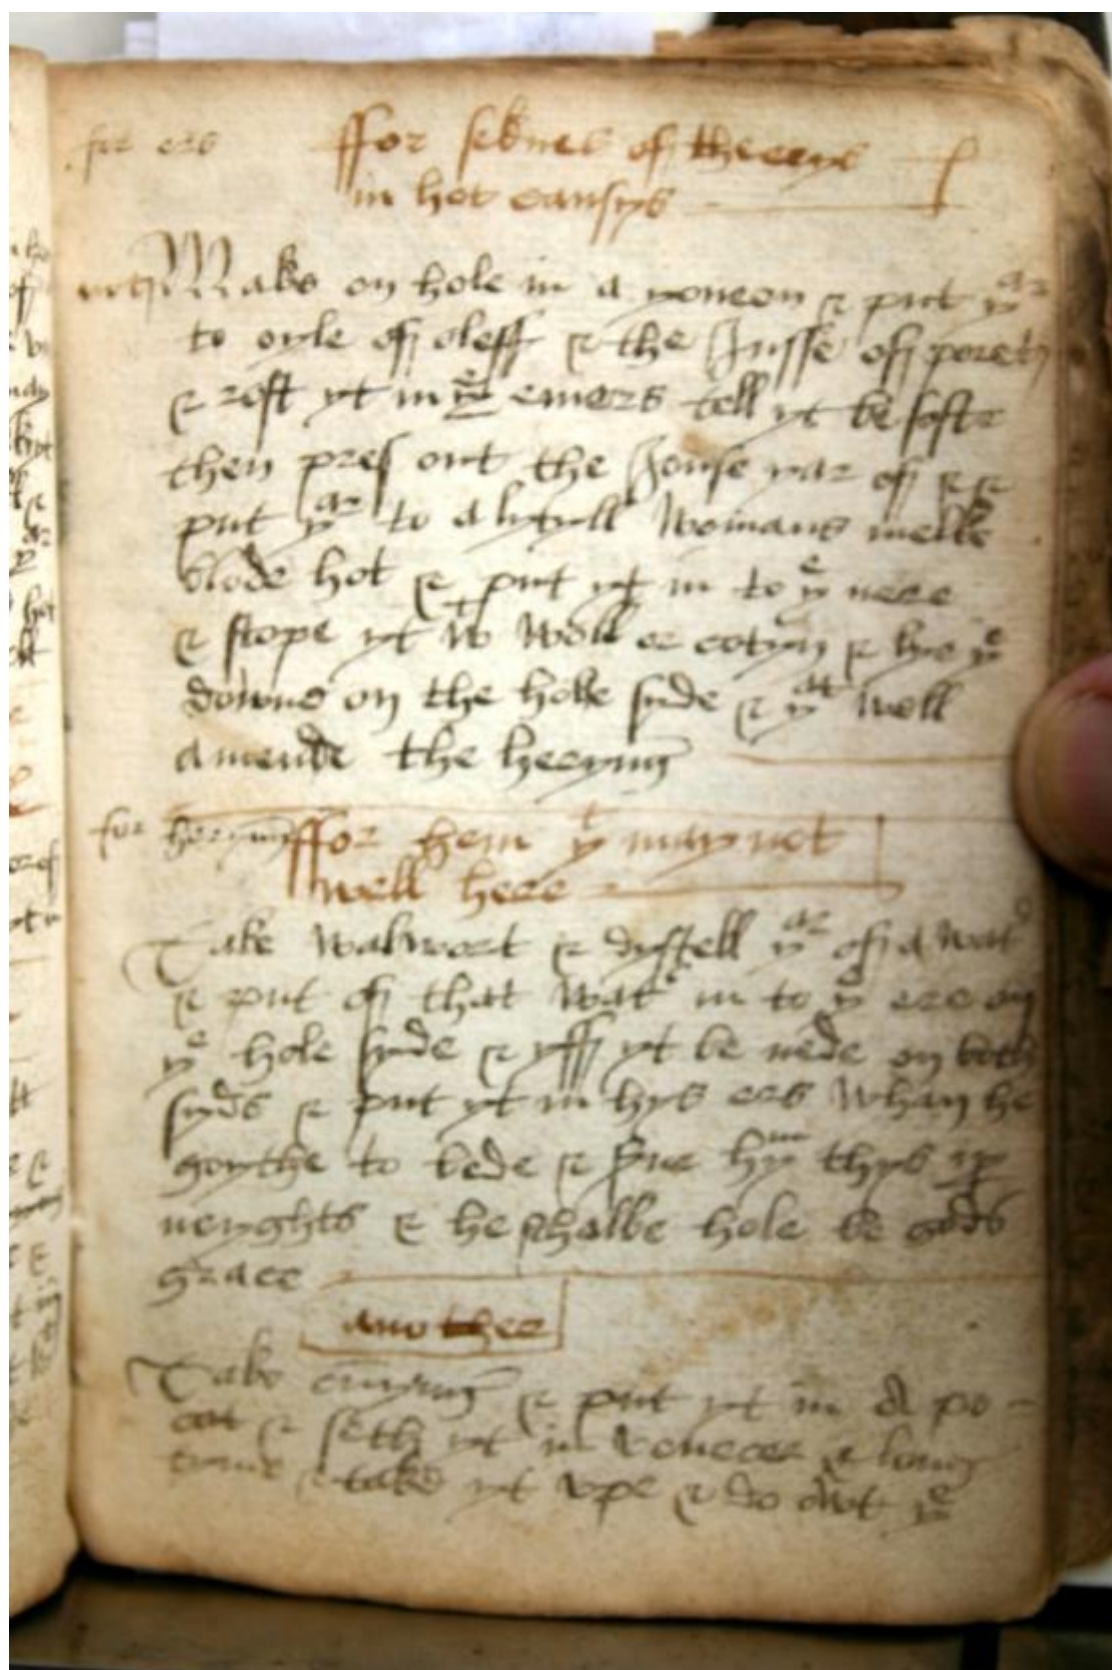 for ers
ffor seknes of the eerys
in hot causys
Make on hole in a yoneon & put yar
to oyle off oleff & the Jusse off poret
& rost yt in ye emers tell yt be softe
then pres out the Jouse yar off &
put yar to a lytyll Womans melke
blode hot & put yt in to ye nere
& stope yt wt Woll or cotyn & lye ye
downe on the hole syde & yat Well
amende the heeryng
for heryng
ffor hem yt may not
well here
Take Walwort & dystell yar off a Wat
& put off that Wat in to ye ere on
ye hole syde & yff yt be nede on both
syds & put yt in hys ers Whan he
goythe to bede & hym thys
neyghts & he shalbe hole be gods
grace
another
Take & put yt in a po
& seth yt in & long
tyme & take yt vpe & do owt ye